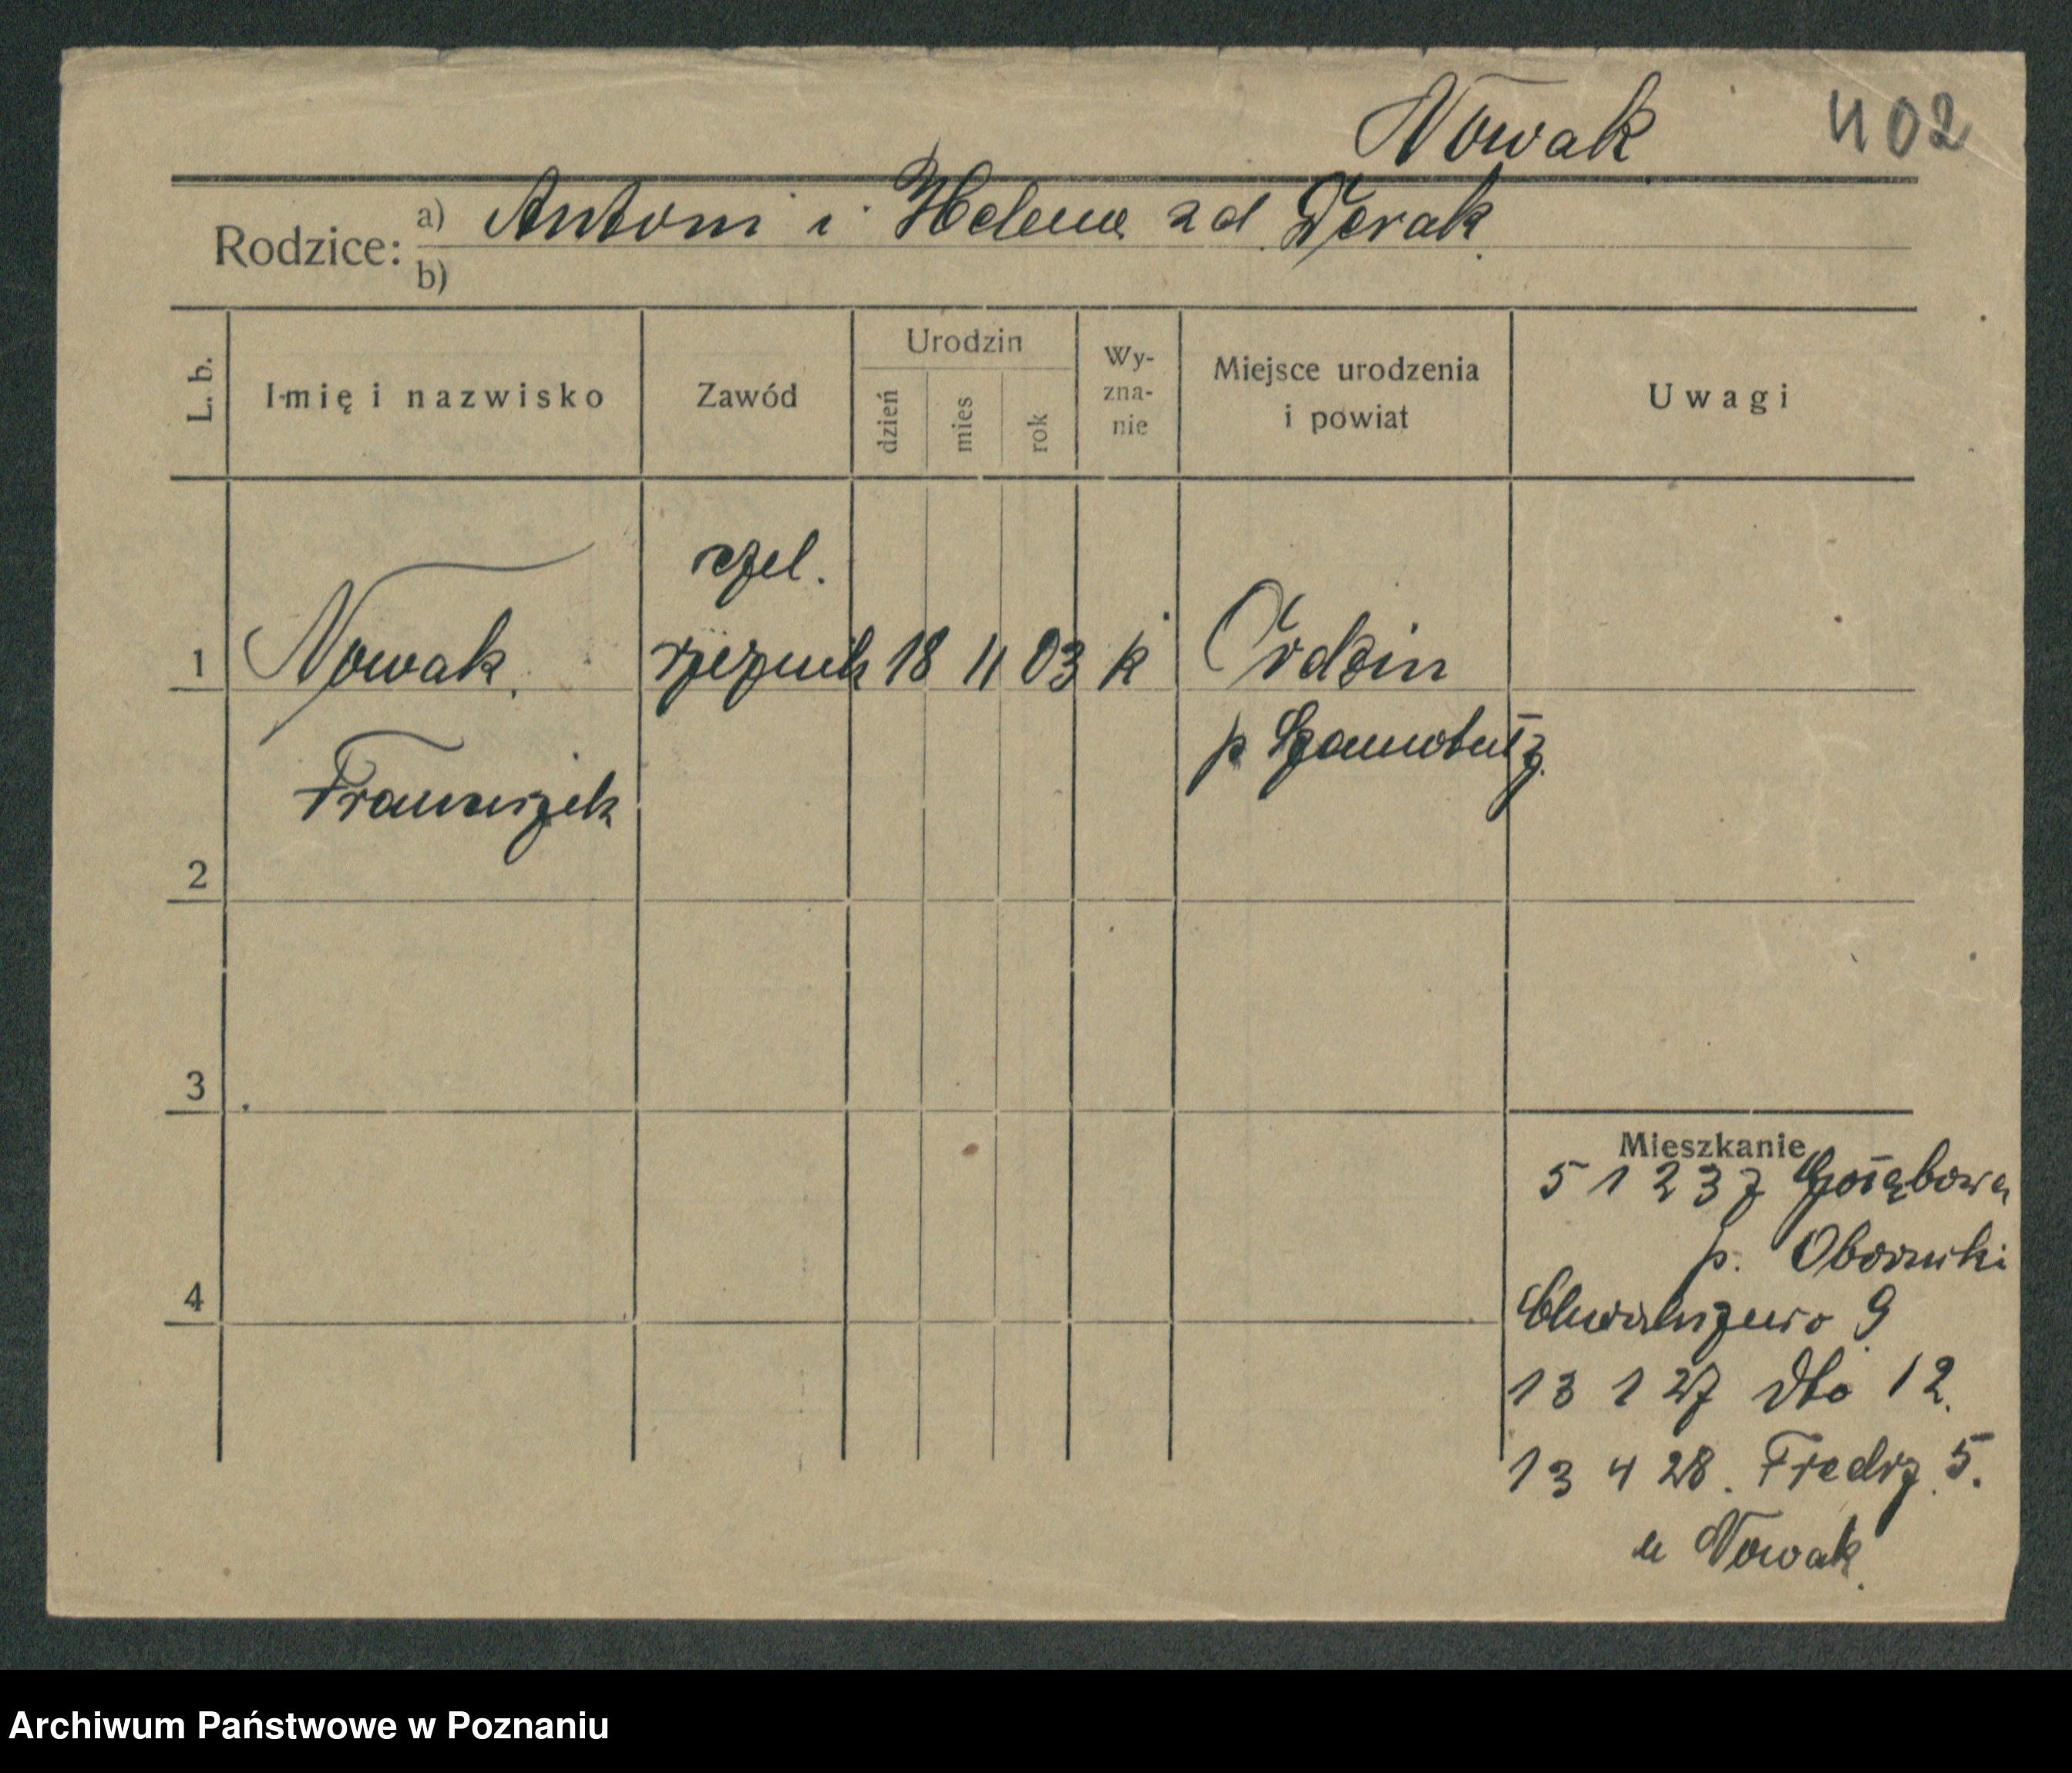 Nowak 402
Rodzice: a) Antoni i Helena zd. Derak
b)
L. b. Imię i nazwisko Zawód Urodzin dzień mies rok Wy-zna-nie Miejsce urodzenia i powiat Uwagi
czel.
1 Nowak rzeznik 18 11 03 k Ordzin
p Szamotuły
Franciszek
2
3
Mieszkanie
5 1 23 z Gołębowa
p. Oborniki
4
Chwaliszewo 9
13 1 27 dto 12.
13 4 28. Fredry 5.
u Nowak.
Archiwum Państwowe w Poznaniu